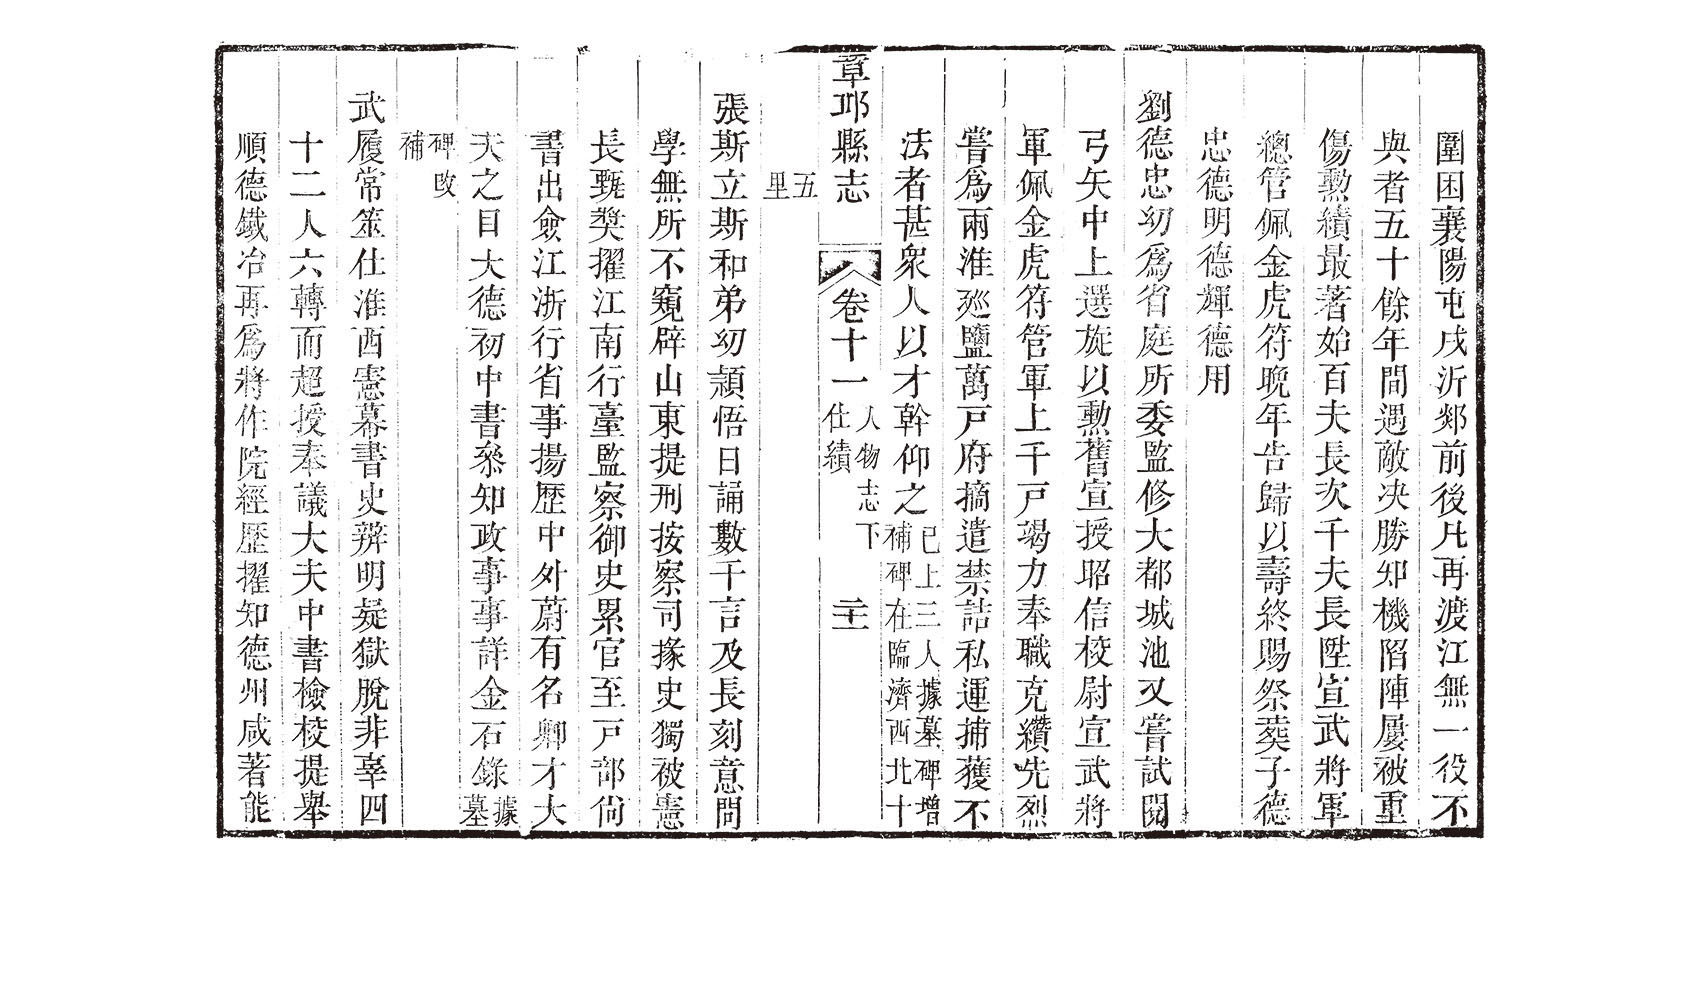 圍困襄陽屯戍沂郯前後凡再渡江無一役不
與者五十餘年間遇敵决勝知機陷陣屢被重
傷勲績最著始百夫長次千夫長陞宣武將軍
總管佩金虎符晩年告歸以壽終賜祭葬子德
忠德明德輝德用
劉德忠幼爲省庭所委監修大都城池又嘗試閱
弓矢中上選旋以勲舊宣授昭信校尉宣武將
軍佩金虎符管軍上千戸竭力奉職克纘先烈
嘗爲兩淮廵鹽萬戸府摘遣禁詰私運捕獲不
法者甚衆人以才幹仰之已上三人據墓碑增
補碑在臨濟西北十
章邱縣志
卷十一
人物志下
仕績
二十一
五
里
張斯立斯和弟幼頴悟日誦數千言及長刻意問
學無所不窺辟山東提刑按察司掾史獨被憲
長甄奬擢江南行臺監察御史累官至戸部尙
書出僉江浙行省事揚歴中外蔚有名卿才大
夫之目大德初中書叅知政事事詳金石錄據
墓
碑改
補
武履常筮仕淮西憲幕書史辨明疑獄脫非辜四
十二人六轉而超授奉議大夫中書檢校提舉
順德鐵冶再爲將作院經歴擢知德州咸著能